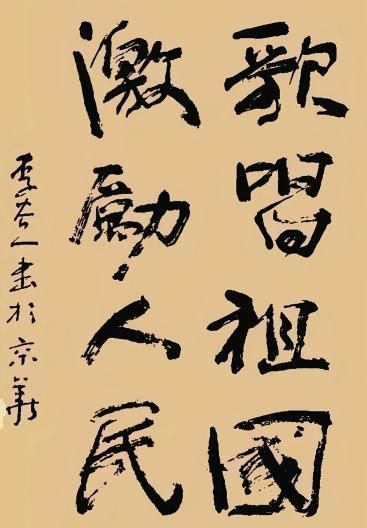 歌唱祖國
激勵人民
李苦人書於京華